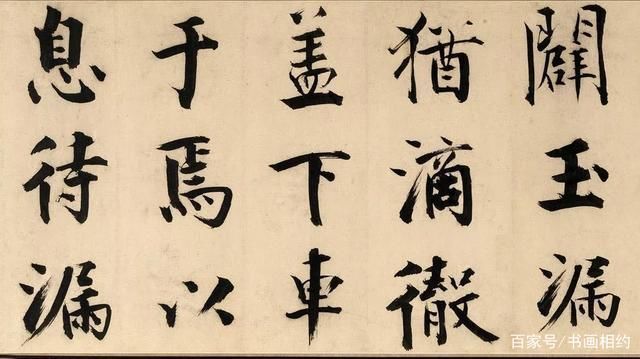 闢玉漏
猶滴徹
盖下車
于焉以
息待漏
百家号/书画相约